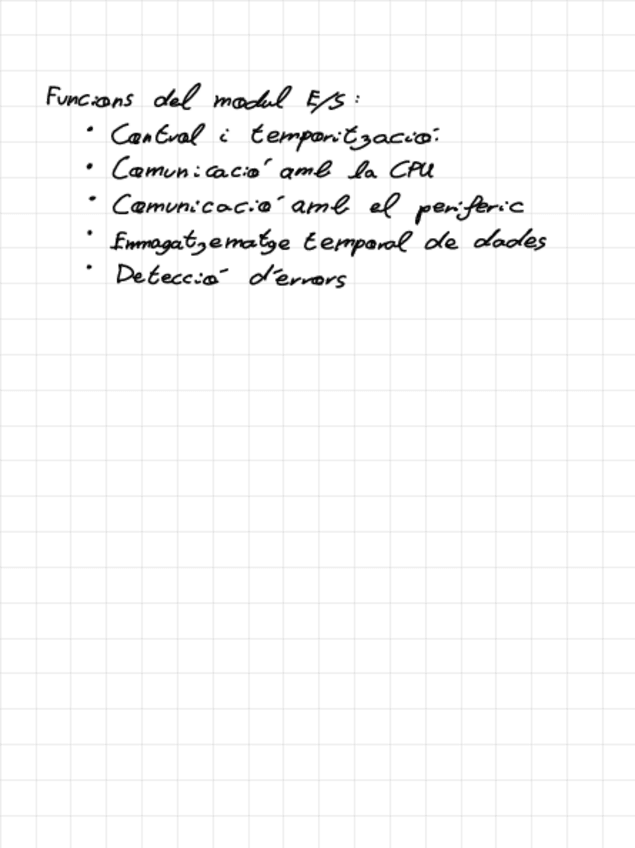 Funcions del modul E/S:
• Control i temporització.
• Comunicació amb la CPU
• Comunicació amb el periferic
• Emmagatzematge temporal de dades
• Detecció d'errors